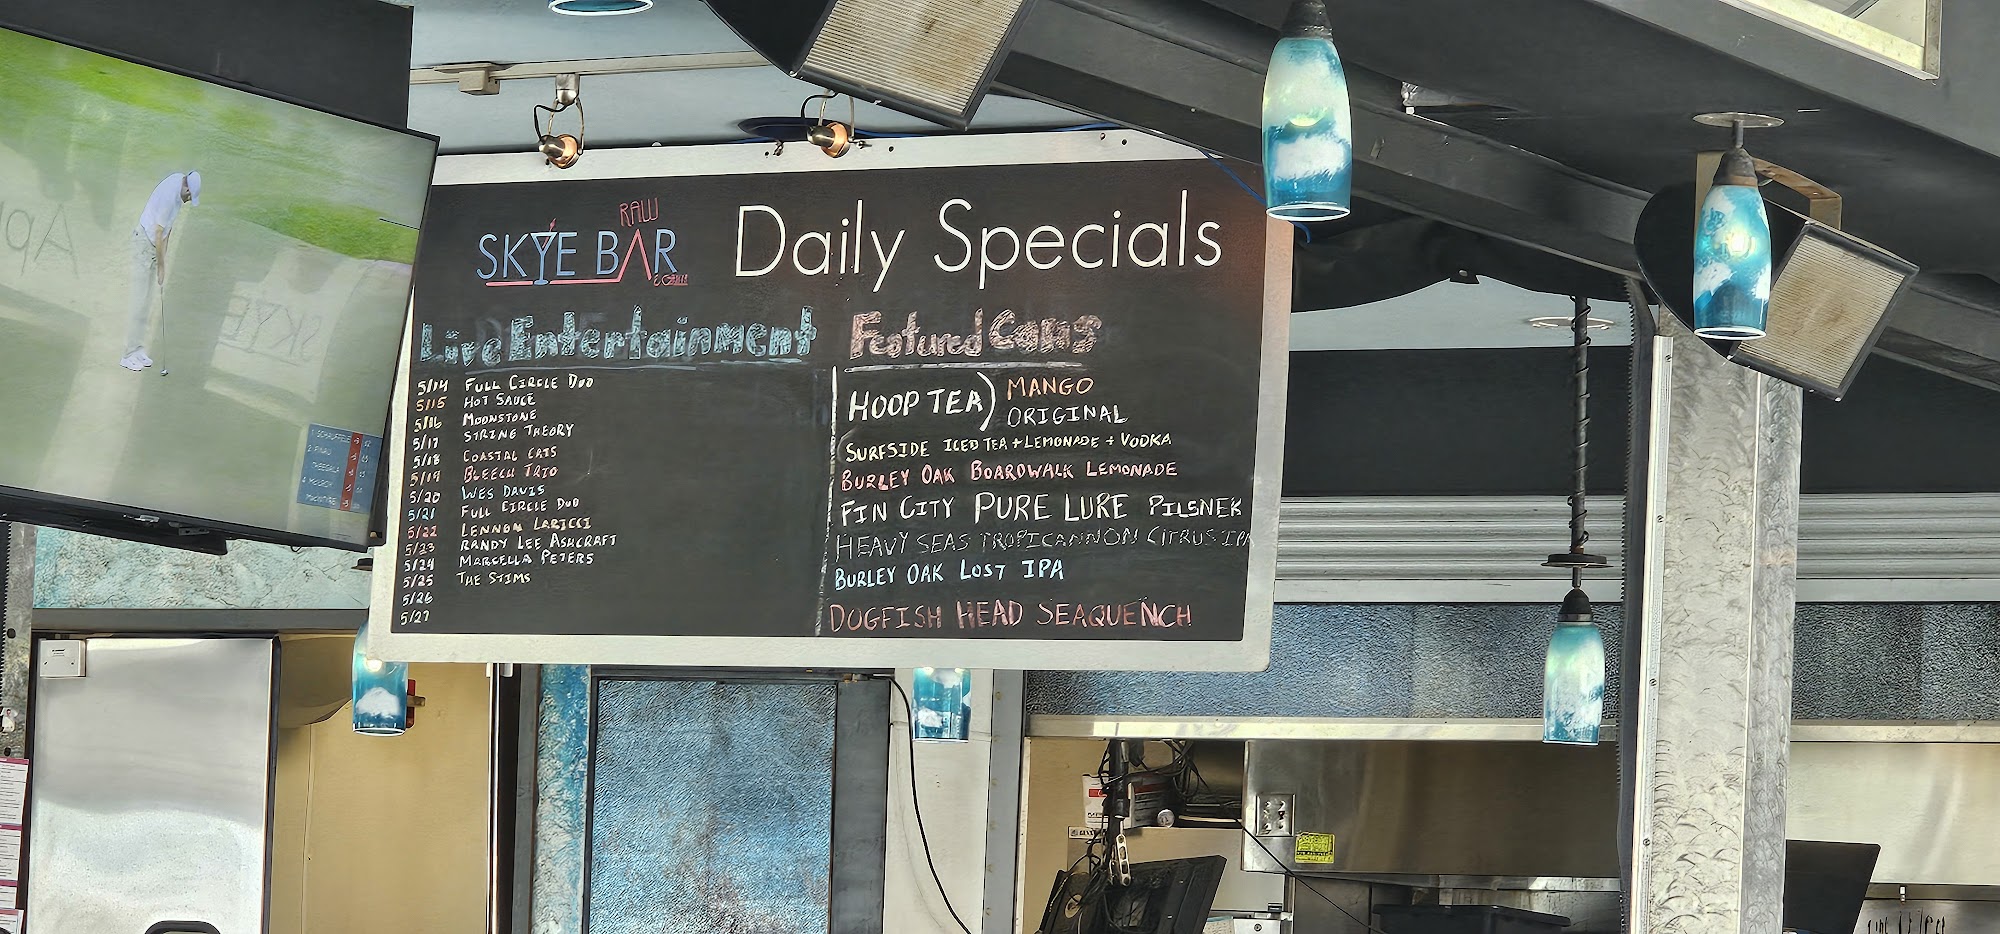 SKYE RAW BAR
& GRILLE
Daily Specials
Live Entertainment
5/14 FULL CIRCLE DUO
5/15 HOT SAUCE
5/16 MOONSTONE
5/17 STRING THEORY
5/18 COASTAL CATS
5/19 BLEECH TRIO
5/20 WES DAVIS
5/21 FULL CIRCLE DUO
5/22 LENNON LARICCI
5/23 RANDY LEE ASHCRAFT
5/24 MARCELLA PETERS
5/25 THE STIMS
5/26
5/27
Featured Cans
HOOP TEA) MANGO
ORIGINAL
SURFSIDE ICED TEA + LEMONADE + VODKA
BURLEY OAK BOARDWALK LEMONADE
FIN CITY PURE LURE PILSNER
HEAVY SEAS TROPICANNON CITRUS IPA
BURLEY OAK LOST IPA
DOGFISH HEAD SEAQUENCH
1 SCHAUFFELE
2 FINAU
THEEGALA
4 MCILROY
MCINTYRE
SKYE